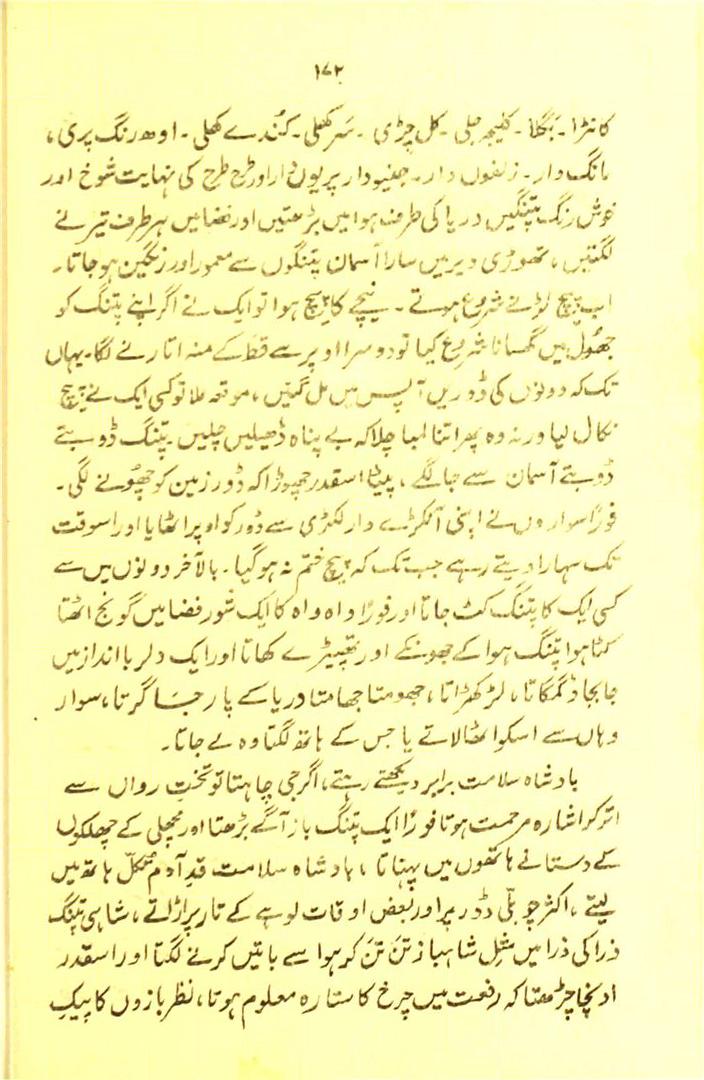 ۱۷۲
کانڑا۔ بَگلا۔ کلیجہ جلی۔ کل چِڑی۔ سَر کھلی۔ کُندے کھلی۔ اودھ رنگ پری،
مانگ دار۔ زلفوں دار۔ جنیو دار پریوں دار اور طرح طرح کی نہایت شوخ اور
خوش رنگ پتنگیں دریا کی طرف ہوا میں بڑھتیں اور فضا میں ہر طرف تیرنے
لگتیں، تھوڑی دیر میں سارا آسمان پتنگوں سے معمور اور رنگین ہو جاتا۔
اب پیچ لڑنے شروع ہوتے۔ نیچے کا پیچ ہوا تو ایک نے اگر اپنے پتنگ کو
جھُول میں گھسانا شروع کیا تو دوسرا اوپر سے قط کے منہ اتارنے لگا۔ یہاں
تک کہ دونوں کی ڈوریں آپس میں مل گئیں، موقعہ ملا تو کسی ایک نے پیچ
نکال لیا ورنہ وہ پھر اتنا لمبا چلا کہ بے پناہ ڈھیلیں چلیں۔ پتنگ ڈوبتے
ڈوبتے آسمان سے جا لگے، پیٹا اسقدر چھوڑا کہ ڈور زمین کو چھُونے لگی۔
فوراً سواروں نے اپنی آنکڑے دار لکڑی سے ڈور کو اوپر اٹھایا اور اسوقت
تک سہارا دیتے رہے جب تک کہ پیچ ختم نہ ہو گیا۔ بالآخر دونوں میں سے
کسی ایک کا پتنگ کٹ جاتا اور فوراً واہ واہ کا ایک شور فضا میں گونج اٹھتا
کٹا ہوا پتنگ ہوا کے جھونکے اور تھپیڑے کھاتا اور ایک دلربا انداز میں
جا بجا ڈگمگاتا، لڑکھڑاتا، جھومتا جھامتا دریا کے پار جا گرتا، سوار
وہاں سے اسکو اٹھا لاتے یا جس کے ہاتھ لگتا وہ لے جاتا۔
بادشاہ سلامت برابر دیکھتے رہتے، اگر جی چاہتا تو تختِ رواں سے
اتر کر اشارہ مرحمت ہوتا فوراً ایک پتنگ باز آگے بڑھتا اور مچھلی کے چھلکوں
کے دستانے ہاتھوں میں پہناتا، بادشاہ سلامت قدِ آدم تُکلّ ہاتھ میں
لیتے، اکثر چوبلّی ڈور پر اور بعض اوقات لوہے کے تار پر اڑاتے، شاہی پتنگ
ذرا کی ذرا میں مثلِ شاہباز تَن تَن کر ہوا سے باتیں کرنے لگتا اور اسقدر
اونچا چڑھتا کہ رفعت میں چرخ کا ستارہ معلوم ہوتا، نظر بازوں کا پیکِ